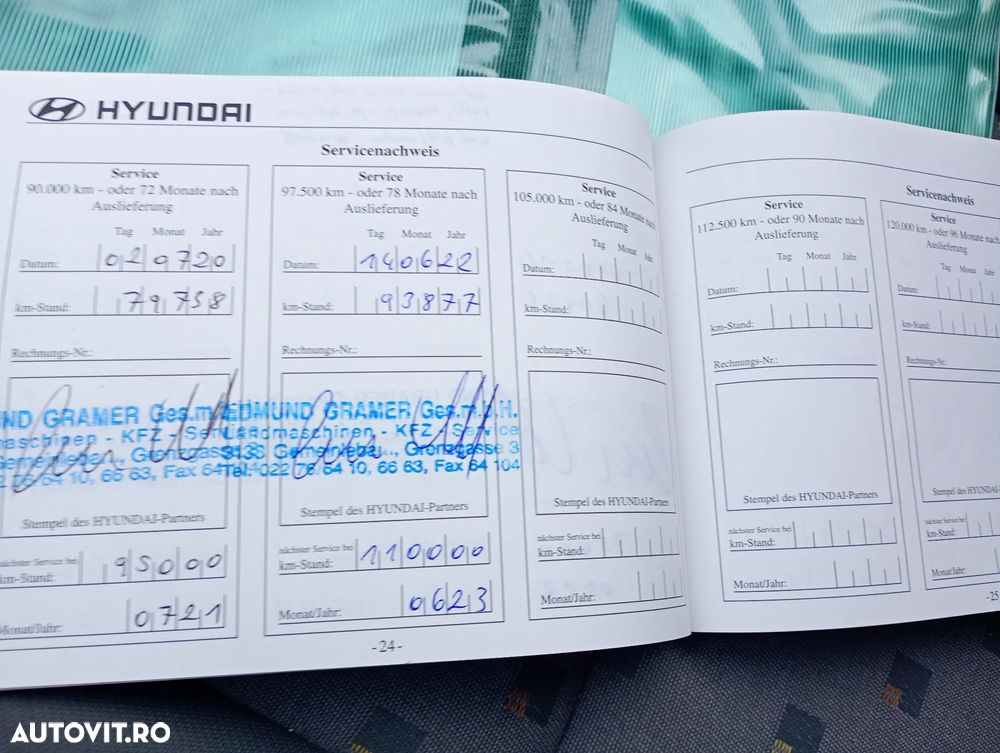 HYUNDAI
Servicenachweis
Service
90.000 km - oder 72 Monate nach
Auslieferung
Tag Monat Jahr
Datum: 020720
km-Stand: 79758
Rechnungs-Nr.:
EDMUND GRAMER Ges.m.
- KFZ - Ser
Gemeinleba.., Grenzgasse 3
76 64 10, 66 63, Fax 64
Stempel des HYUNDAI-Partners
nächster Service bei
km-Stand: 95000
Monat/Jahr: 0721
Service
97.500 km - oder 78 Monate nach
Auslieferung
Tag Monat Jahr
Datum: 140622
km-Stand: 93877
Rechnungs-Nr.:
EDMUND GRAMER Ges.m.b.H.
Landmaschinen - KFZ - Service
3133 Gemeinleba.., Grenzgasse 3
Tel. 022 76 64 10, 66 63, Fax 64 104
Stempel des HYUNDAI-Partners
nächster Service bei
km-Stand: 110000
Monat/Jahr: 0623
Service
105.000 km - oder 84 Monate nach
Auslieferung
Tag Monat Jahr
Datum:
km-Stand:
Rechnungs-Nr.:
Stempel des HYUNDAI-Partners
nächster Service bei
km-Stand:
Monat/Jahr:
-24-
Servicenachweis
Service
112.500 km - oder 90 Monate nach
Auslieferung
Tag Monat Jahr
Datum:
km-Stand:
Rechnungs-Nr.:
Stempel des HYUNDAI-Partners
nächster Service bei
km-Stand:
Monat/Jahr:
Service
120.000 km - oder 96 Monate nach
Auslieferung
Tag Monat Jahr
Datum:
km-Stand:
Rechnungs-Nr.:
Stempel des HYUNDAI
nächster Service bei
km-Stand:
Monat/Jahr:
-25
AUTOVIT.RO